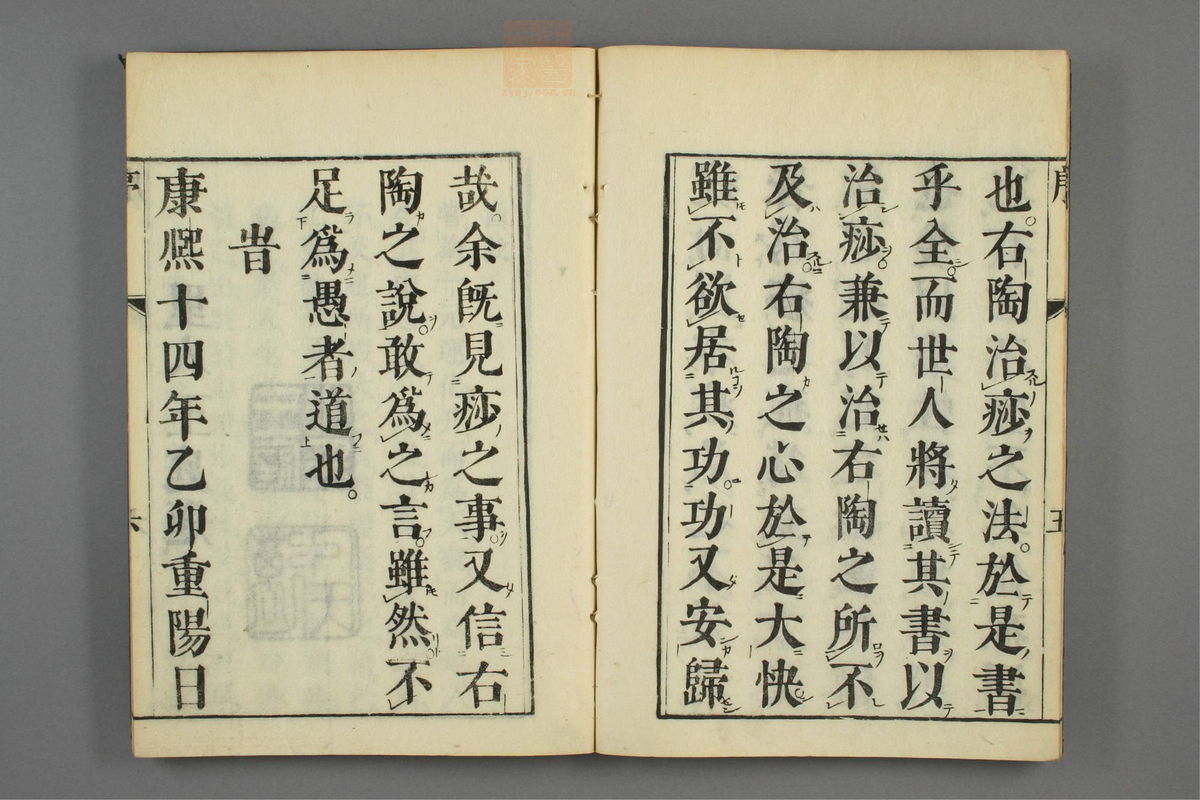 也右陶治痧之法於是書
乎全而世人將讀其書以
治痧兼以治右陶之所不
及治右陶之心於是大快
雖不欲居其功功又安歸
哉余既見痧之事又信右
陶之說敢為之言雖然不
足為愚者道也
旹
康熙十四年乙卯重陽日